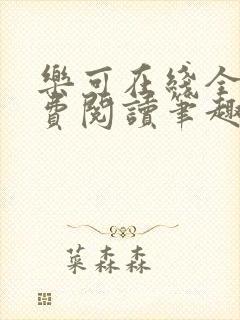 樂可在綫全
費閱讀筆趣
菜森森